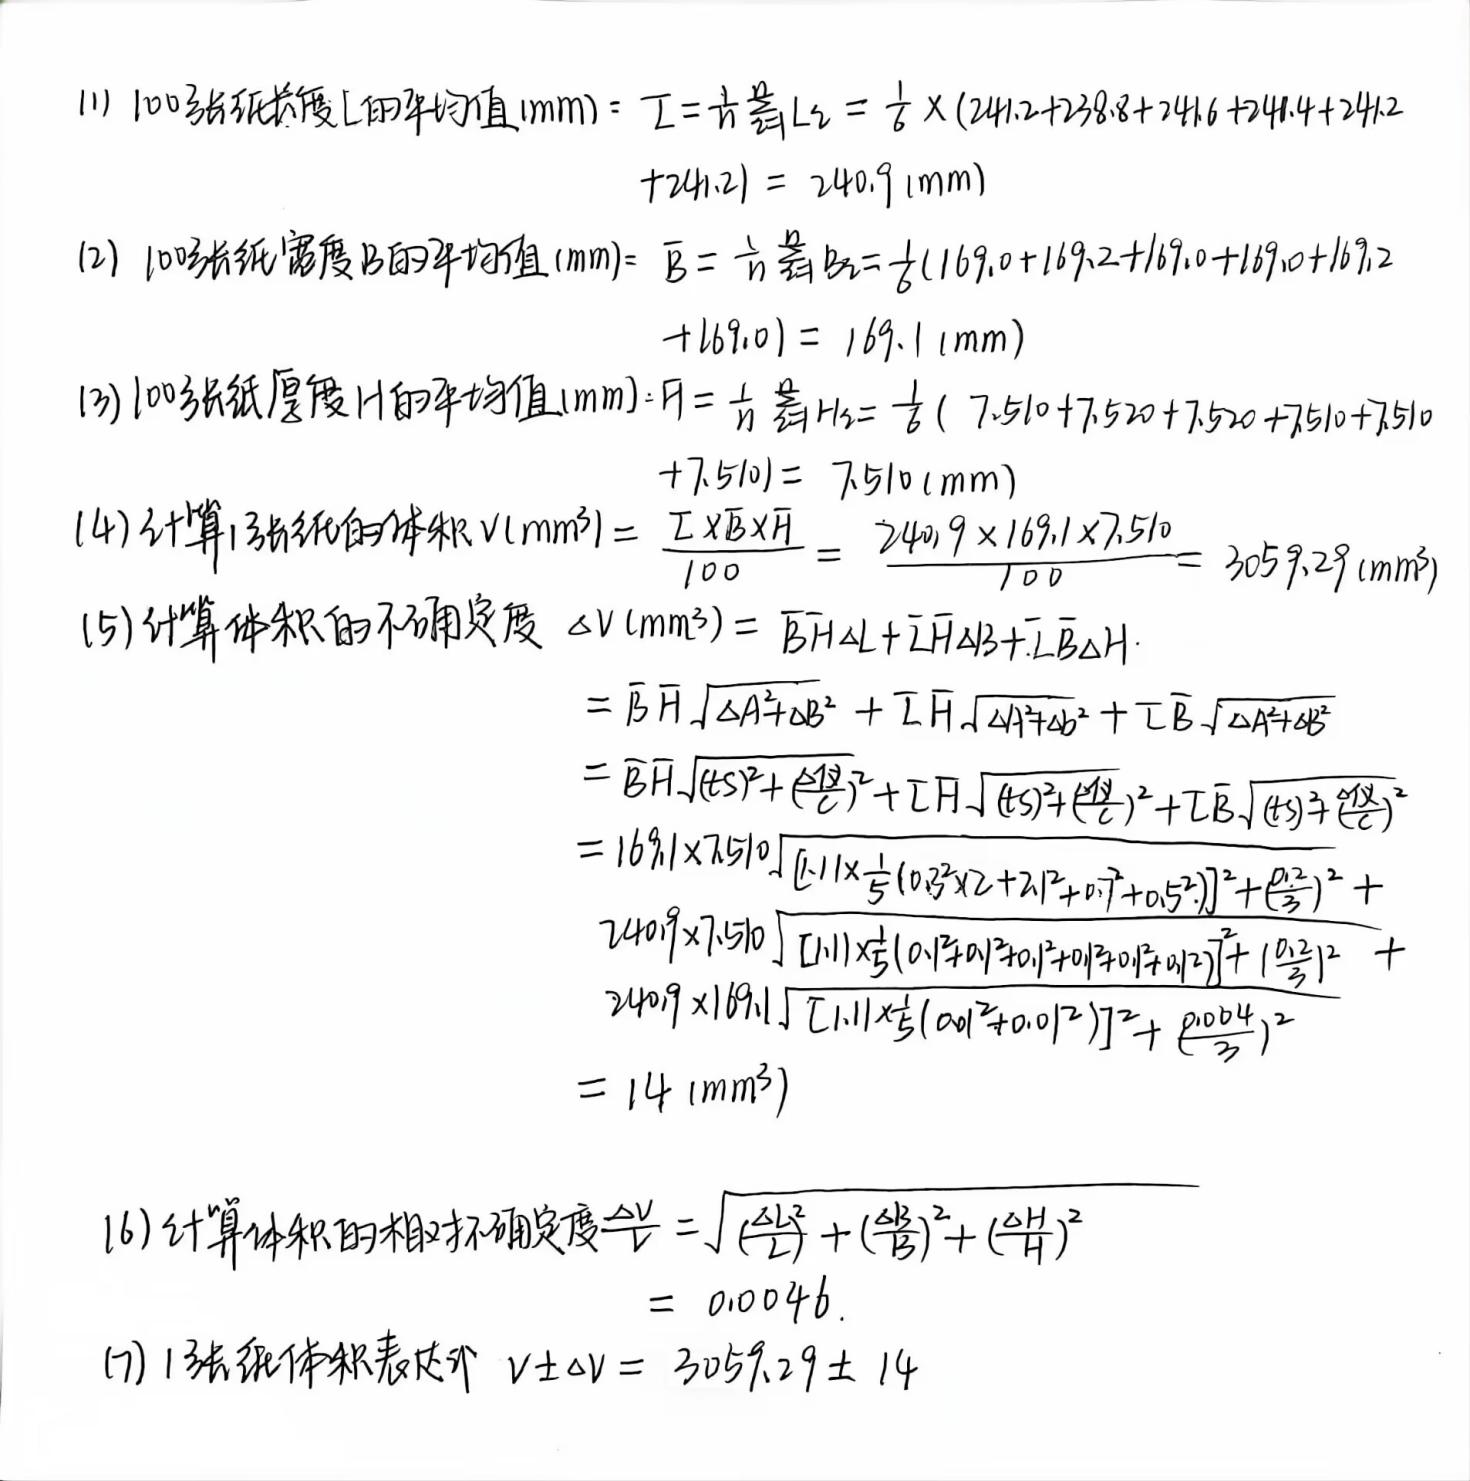 (1) 100张纸长度L的平均值(mm) = L̄ = 1/n Σ(i=1→n) Li = 1/6 × (241.2+238.8+241.6+241.4+241.2
+241.2) = 240.9 (mm)
(2) 100张纸宽度B的平均值(mm) = B̄ = 1/n Σ(i=1→n) Bi = 1/6 (169.0+169.2+169.0+169.0+169.2
+169.0) = 169.1 (mm)
(3) 100张纸厚度H的平均值(mm) = H̄ = 1/n Σ(i=1→n) Hi = 1/6 (7.510+7.520+7.520+7.510+7.510
+7.510) = 7.510 (mm)
(4) 计算1张纸的体积V(mm³) = (L̄×B̄×H̄)/100 = (240.9×169.1×7.510)/100 = 3059.29 (mm³)
(5) 计算体积的不确定度 ΔV(mm³) = B̄H̄ΔL + L̄H̄ΔB + L̄B̄ΔH
= B̄H̄√(ΔA²+ΔB²) + L̄H̄√(ΔA²+Δb²) + L̄B̄√(ΔA²+ΔB²)
= B̄H̄√((tS)²+(Δ仪/C)²) + L̄H̄√((tS)²+(Δ仪/C)²) + L̄B̄√((tS)²+(Δ仪/C)²)
= 169.1×7.510√([1.11×1/5(0.3²×2+2.1²+0.7²+0.5²)]²+(0.2/3)²) +
240.9×7.510√([1.11×1/5(0.1²+0.1²+0.1²+0.1²+0.1²+0.1²)]²+(0.2/3)²) +
240.9×169.1√([1.11×1/5(0.01²+0.01²)]²+(0.004/3)²)
= 14 (mm³)
(6) 计算体积的相对不确定度 ΔV/V = √((ΔL/L)²+(ΔB/B)²+(ΔH/H)²)
= 0.0046.
(7) 1张纸体积表达式 V±ΔV = 3059.29 ± 14